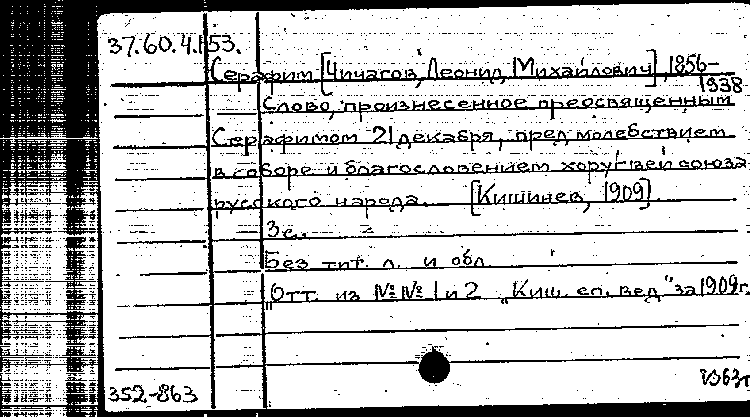 37.60.4.153.
Серафим [Чичагов, Леонид Михайлович], 1856–
1938
Слово, произнесенное преосвященным
Серафимом 21 декабря, пред молебствием
в соборе и благословением хоругвей союза
русского народа. [Кишинев, 1909]
3 с.
Без тит. л. и обл.
Отт. из №№ 1 и 2 „Киш. еп. вед." за 1909 г.
352-863